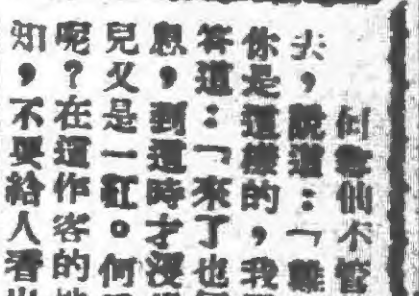 仙不管
去，說道：「難
你是這樣的，我
答道：「來了也
息，到這時才沒
兒又是一紅。何
呢？在這作客的
知，不要給人看